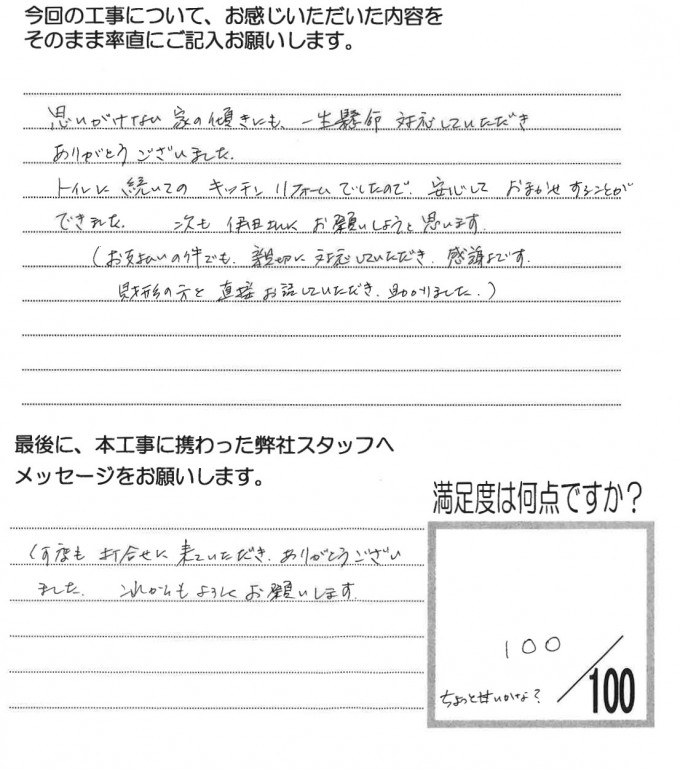 今回の工事について、お感じいただいた内容を
そのまま率直にご記入お願いします。
思いがけない家の傾きにも、一生懸命 対応していただき
ありがとうございました。
トイレに続いての キッチンリフォームでしたので、安心して おまかせすることが
できました。 次も 伊田さんに お願いしようと思います。
(お支払いの件でも、親切に 対応していただき、感謝です。
財形の方と 直接お話していただき、助かりました。)
最後に、本工事に携わった弊社スタッフへ
メッセージをお願いします。
何度も 打合せに 来ていただき、ありがとうござい
ました。 これからもよろしくお願いします。
満足度は何点ですか?
100
/100
ちょっと甘いかな?